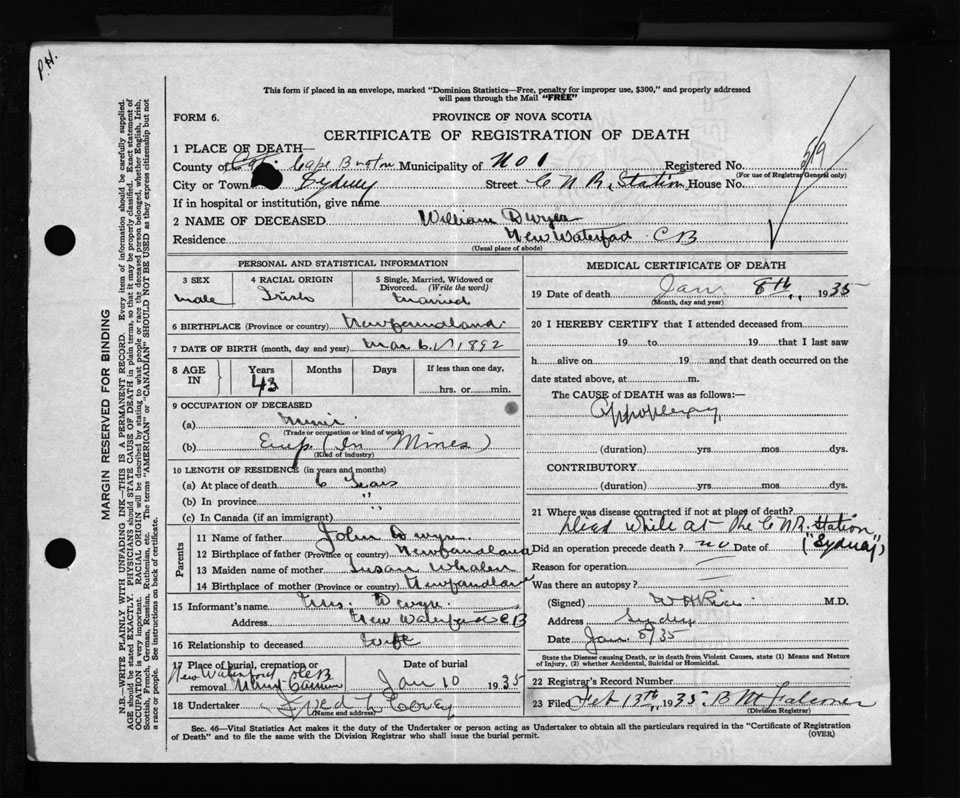 P.H.
This form if placed in an envelope, marked "Dominion Statistics—Free, penalty for improper use, $300," and properly addressed
will pass through the Mail "FREE"
FORM 6.
PROVINCE OF NOVA SCOTIA
CERTIFICATE OF REGISTRATION OF DEATH
1 PLACE OF DEATH—
County of Cape Breton Municipality of No 1 Registered No. 519
(For use of Registrar General only)
City or Town Sydney Street C N R, Station House No.
If in hospital or institution, give name
2 NAME OF DECEASED William Dwyer
Residence New Waterford CB
(Usual place of abode)
PERSONAL AND STATISTICAL INFORMATION
3 SEX male
4 RACIAL ORIGIN Irish
5 Single, Married, Widowed or Divorced. (Write the word) Married
6 BIRTHPLACE (Province or country) Newfoundland
7 DATE OF BIRTH (month, day and year) Mar 6 1892
8 AGE IN Years 43 Months Days If less than one day, hrs. or min.
9 OCCUPATION OF DECEASED
(a) Miner
(Trade or occupation or kind of work)
(b) Emp (In Mines)
(Kind of industry)
10 LENGTH OF RESIDENCE (in years and months)
(a) At place of death 6 Years
(b) In province "
(c) In Canada (if an immigrant) "
Parents
11 Name of father John Dwyer
12 Birthplace of father (Province or country) Newfoundland
13 Maiden name of mother Susan Whalen
14 Birthplace of mother (Province or country) Newfoundland
15 Informant's name Mrs. Dwyer
Address New Waterford CB
16 Relationship to deceased wife
17 Place of burial, cremation or removal New Waterford CB
Date of burial Jan 10 1935
18 Undertaker Fred L Covey
(Name and address)
MEDICAL CERTIFICATE OF DEATH
19 Date of death Jan 8th, 1935
(Month, day and year)
20 I HEREBY CERTIFY that I attended deceased from
19 to 19 that I last saw
h alive on 19 and that death occurred on the
date stated above, at m.
The CAUSE of DEATH was as follows:—
Appoplexy
(duration) yrs. mos. dys.
CONTRIBUTORY
(duration) yrs. mos. dys.
21 Where was disease contracted if not at place of death?
Died while at the C N R. Station
("Sydney")
Did an operation precede death? no Date of
Reason for operation
Was there an autopsy?
(Signed) M.D.
Address Sydney
Date Jan 8/35
State the Disease causing Death, or in death from Violent Causes, state (1) Means and Nature
of Injury, (2) whether Accidental, Suicidal or Homicidal.
22 Registrar's Record Number
23 Filed Feb 13th, 1935. B M Falconer
(Division Registrar)
Sec. 46—Vital Statistics Act makes it the duty of the Undertaker or person acting as Undertaker to obtain all the particulars required in the "Certificate of Registration
of Death" and to file the same with the Division Registrar who shall issue the burial permit.
(OVER)
MARGIN RESERVED FOR BINDING
N.B.—WRITE PLAINLY WITH UNFADING INK—THIS IS A PERMANENT RECORD. Every item of information should be carefully supplied.
AGE should be stated EXACTLY. PHYSICIANS should STATE CAUSE OF DEATH in plain terms, so that it may be properly classified. Exact statement of
OCCUPATION is very important. RACIAL ORIGIN will be described by stating to what people or race the deceased person belonged, whether English, Irish,
Scottish, French, German, Russian, Ruthenian, etc. The terms "AMERICAN" or "CANADIAN" SHOULD NOT BE USED as they express citizenship but not
a race or people. See instructions on back of certificate.